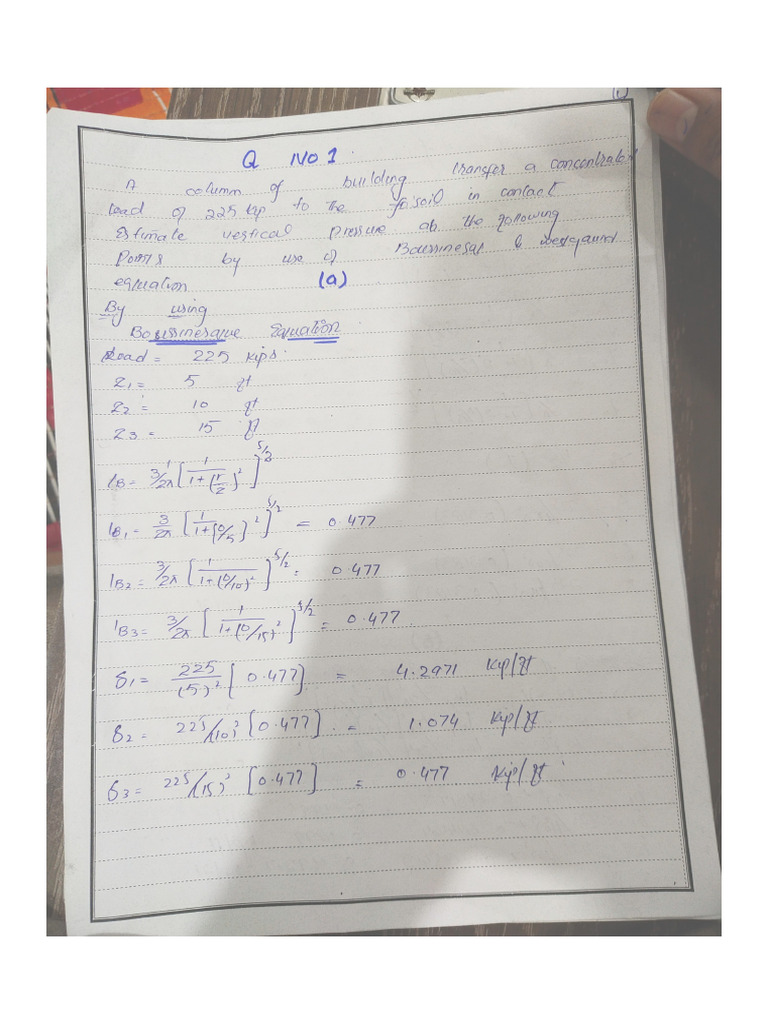 1
Q NO 1.
A column of building transfer a concentrated
load of 225 kip to the soil in contact
Estimate vertical pressure at the following
Points by use of Boussinesq & westgaurd
equation (a)
By using
Boussinesque Equation
Load = 225 kips.
Z1 = 5 ft
Z2 = 10 ft
Z3 = 15 ft
IB = 3/2π [1/1+(r/z)²]^5/2
IB1 = 3/2π [1/1+(0/5)²]^5/2 = 0.477
IB2 = 3/2π [1/1+(0/10)²]^5/2 = 0.477
IB3 = 3/2π [1/1+(0/15)²]^5/2 = 0.477
σ1 = 225/(5)² [0.477] = 4.2971 Kip/ft
σ2 = 225/(10)² [0.477] = 1.074 Kip/ft
σ3 = 225/(15)² [0.477] = 0.477 Kip/ft